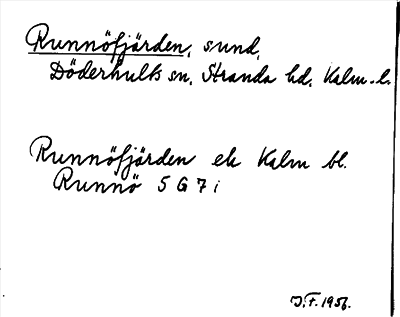 Runnöfjärden, sund,
Döderhults sn, Stranda hd, Kalm. l.
Runnöfjärden ek Kalm bl.
Runnö 5 G 7 i
J.F. 1956.